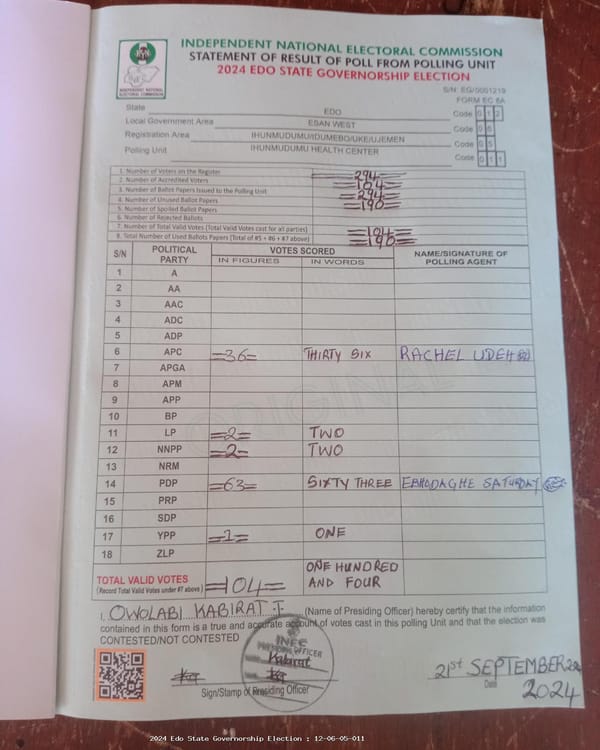 INDEPENDENT NATIONAL ELECTORAL COMMISSION
STATEMENT OF RESULT OF POLL FROM POLLING UNIT
2024 EDO STATE GOVERNORSHIP ELECTION
INDEPENDENT NATIONAL ELECTORAL COMMISSION
S/N: EG/0001219
FORM EC 8A
State EDO Code 0 1 2
Local Government Area ESAN WEST Code 0 6
Registration Area IHUNMUDUMU/IDUMEBO/UKE/UJEMEN Code 0 5
Polling Unit IHUNMUDUMU HEALTH CENTER Code 0 1 1
1. Number of Voters on the Register =294=
2. Number of Accredited Voters =104=
3. Number of Ballot Papers Issued to the Polling Unit =294=
4. Number of Unused Ballot Papers =190=
5. Number of Spoiled Ballot Papers
6. Number of Rejected Ballots
7. Number of Total Valid Votes (Total Valid Votes cast for all parties) =104=
8. Total Number of Used Ballots Papers (Total of #5 + #6 + #7 above) =190=
S/N POLITICAL PARTY VOTES SCORED NAME/SIGNATURE OF POLLING AGENT
IN FIGURES IN WORDS
1 A
2 AA
3 AAC
4 ADC
5 ADP
6 APC =36= THIRTY SIX RACHEL UDEH
7 APGA
8 APM
9 APP
10 BP
11 LP =2= TWO
12 NNPP =2= TWO
13 NRM
14 PDP =63= SIXTY THREE EBHODAGHE SATURDAY
15 PRP
16 SDP
17 YPP =1= ONE
18 ZLP
TOTAL VALID VOTES =104= ONE HUNDRED AND FOUR
(Record Total Valid Votes under #7 above)
ORIGINAL
I, OWOLABI KABIRAT T. (Name of Presiding Officer) hereby certify that the information
contained in this form is a true and accurate account of votes cast in this polling Unit and that the election was
CONTESTED/NOT CONTESTED
INEC
PRESIDING OFFICER
Kabirat
Sign/Stamp of Presiding Officer
21st SEPTEMBER 2024
Date
2024
2024 Edo State Governorship Election : 12-06-05-011